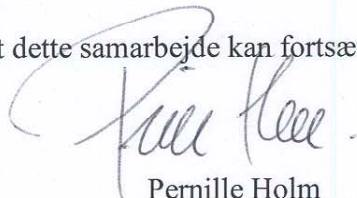 t dette samarbejde kan fortsæ
Pernille Holm